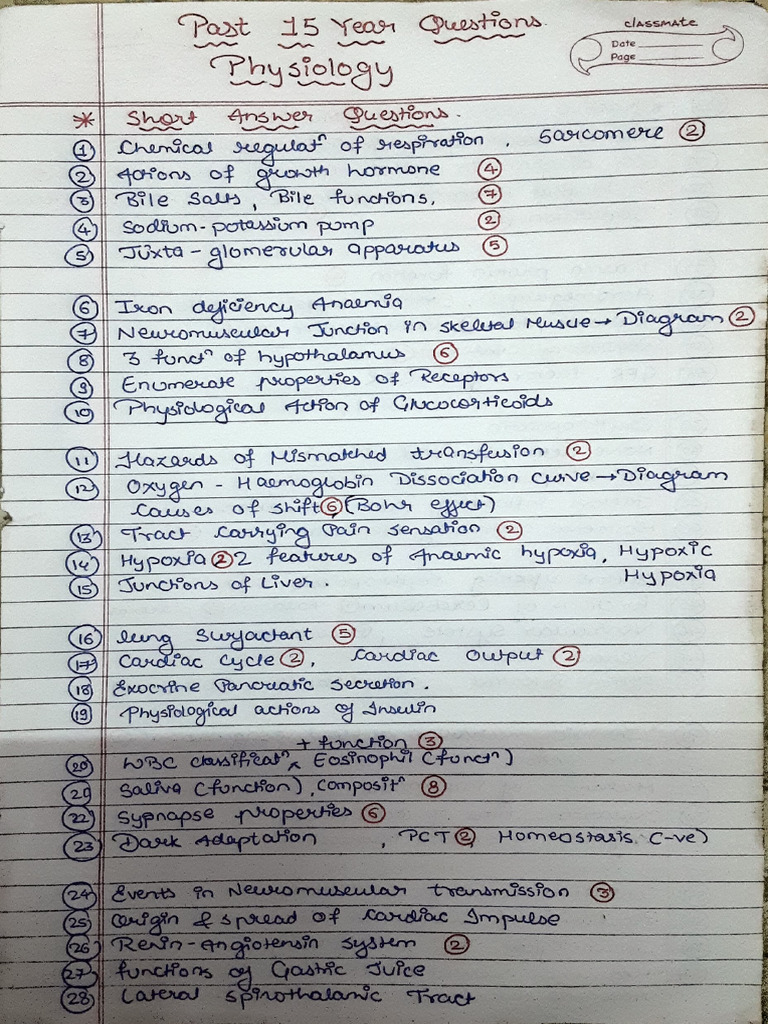 Past 15 Year Questions
Physiology
classmate
Date
Page
* Short Answer Questions.
① Chemical regulatⁿ of respiration, Sarcomere ②
② Actions of growth hormone ④
3 Bile Salts, Bile functions, ⑦
④ Sodium-potassium pump ②
⑤ Juxta-glomerular apparatus ⑤
⑥ Iron deficiency Anaemia
⑦ Neuromuscular Junction in skeletal Muscle → Diagram ②
⑧ 3 functⁿ of hypothalamus ⑥
⑨ Enumerate properties of Receptors
⑩ Physiological Action of Glucocorticoids
⑪ Hazards of Mismatched transfusion ②
⑫ Oxygen - Haemoglobin Dissociation Curve → Diagram
Causes of shift ⑥ (Bohr effect)
⑬ Tract carrying Pain sensation ②
⑭ Hypoxia ② 2 features of Anaemic hypoxia, Hypoxic
Hypoxia
⑮ Functions of Liver.
⑯ Lung Surfactant ⑤
⑰ Cardiac Cycle ②, Cardiac Output ②
⑱ Exocrine Pancreatic Secretion.
⑲ Physiological actions of Insulin
+ function ③
⑳ WBC classificatⁿ ^ Eosinophil (functⁿ)
㉑ Saliva (function), Compositⁿ ⑧
㉒ Sypnapse properties ⑥
㉓ Dark Adaptation , PCT ②, Homeostasis (-ve)
㉔ Events in Neuromuscular transmission ③
㉕ Origin & spread of Cardiac Impulse
㉖ Renin-Angiotensin system ②
㉗ functions of Gastric Juice
㉘ Lateral spinothalamic Tract